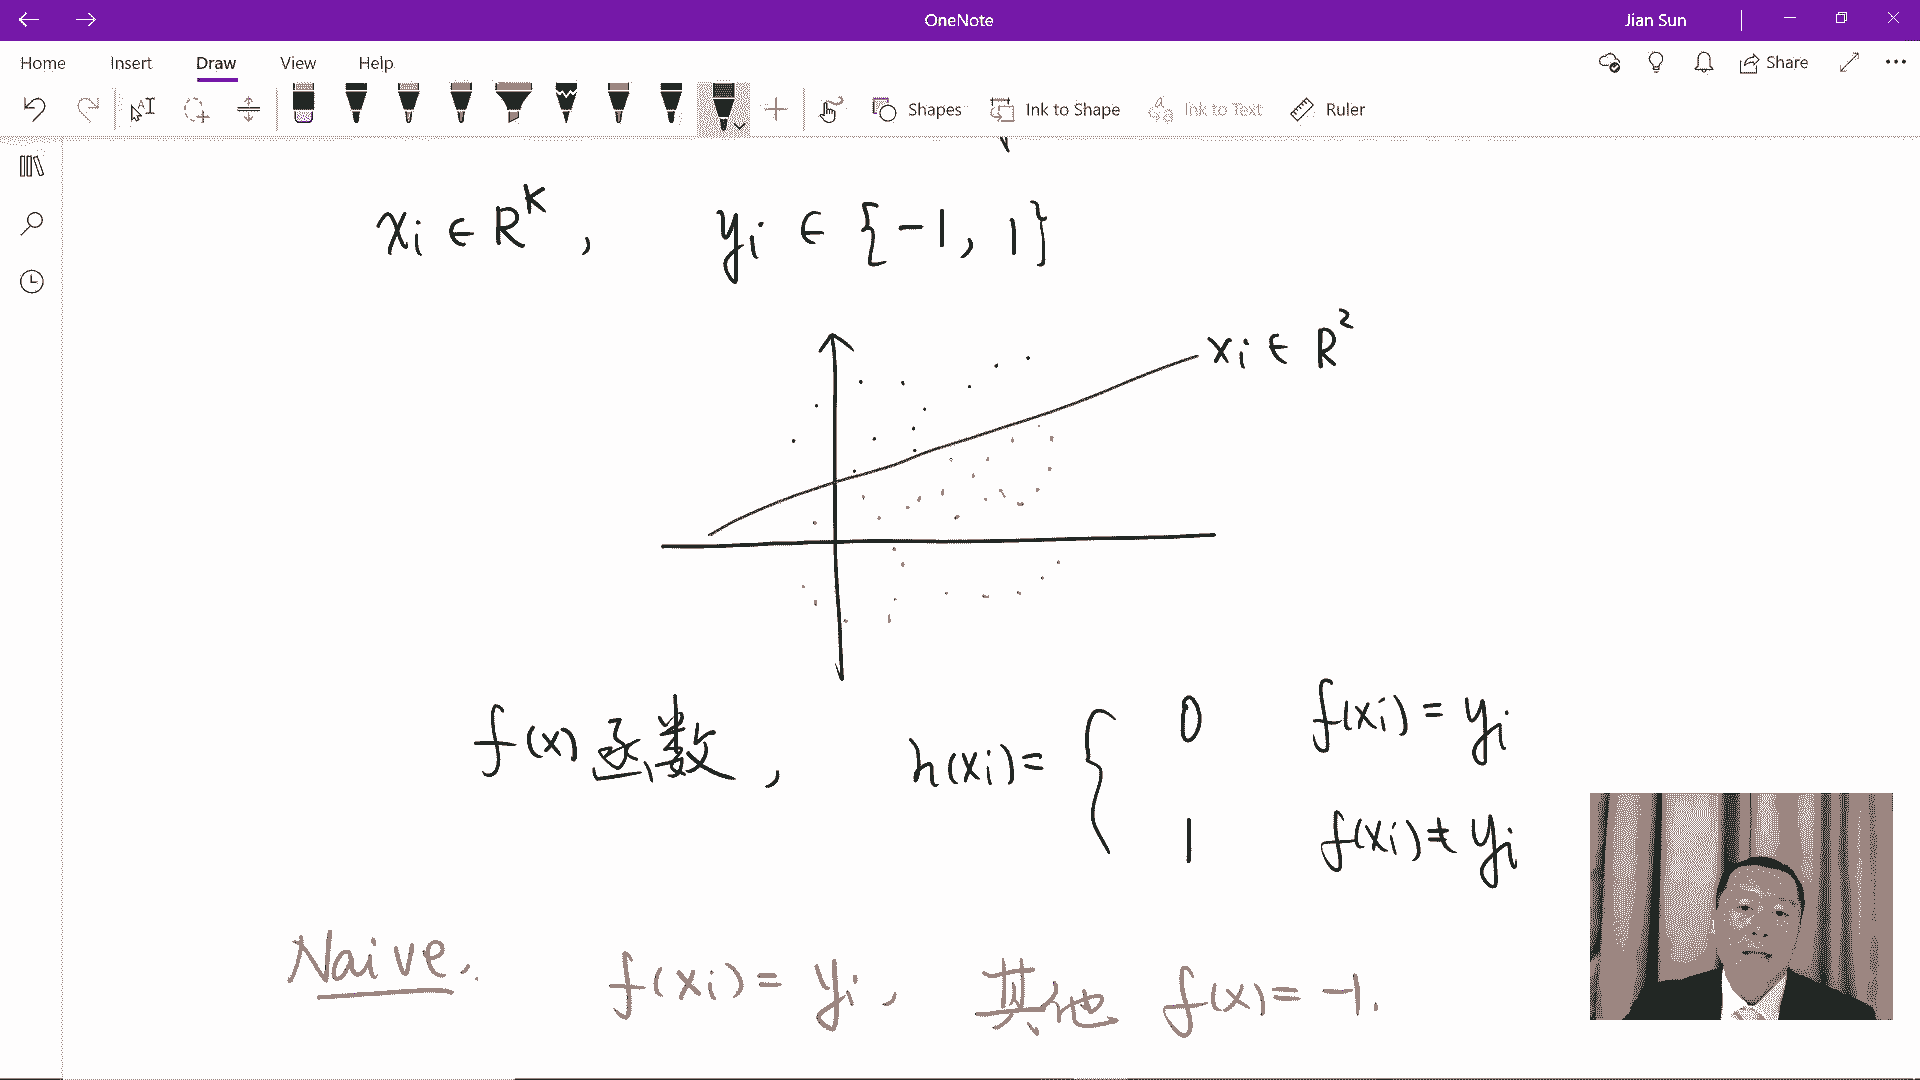 OneNote
Jian Sun
Home Insert Draw View Help
Share
Shapes Ink to Shape Ink to Text Ruler
xᵢ ∈ Rᴷ , yᵢ ∈ {-1, 1}
xᵢ ∈ R²
f(x) 函数 , h(xᵢ) = { 0 f(xᵢ) = yᵢ
1 f(xᵢ) ≠ yᵢ
Naive. f(xᵢ) = yᵢ , 其他 f(x) = -1.